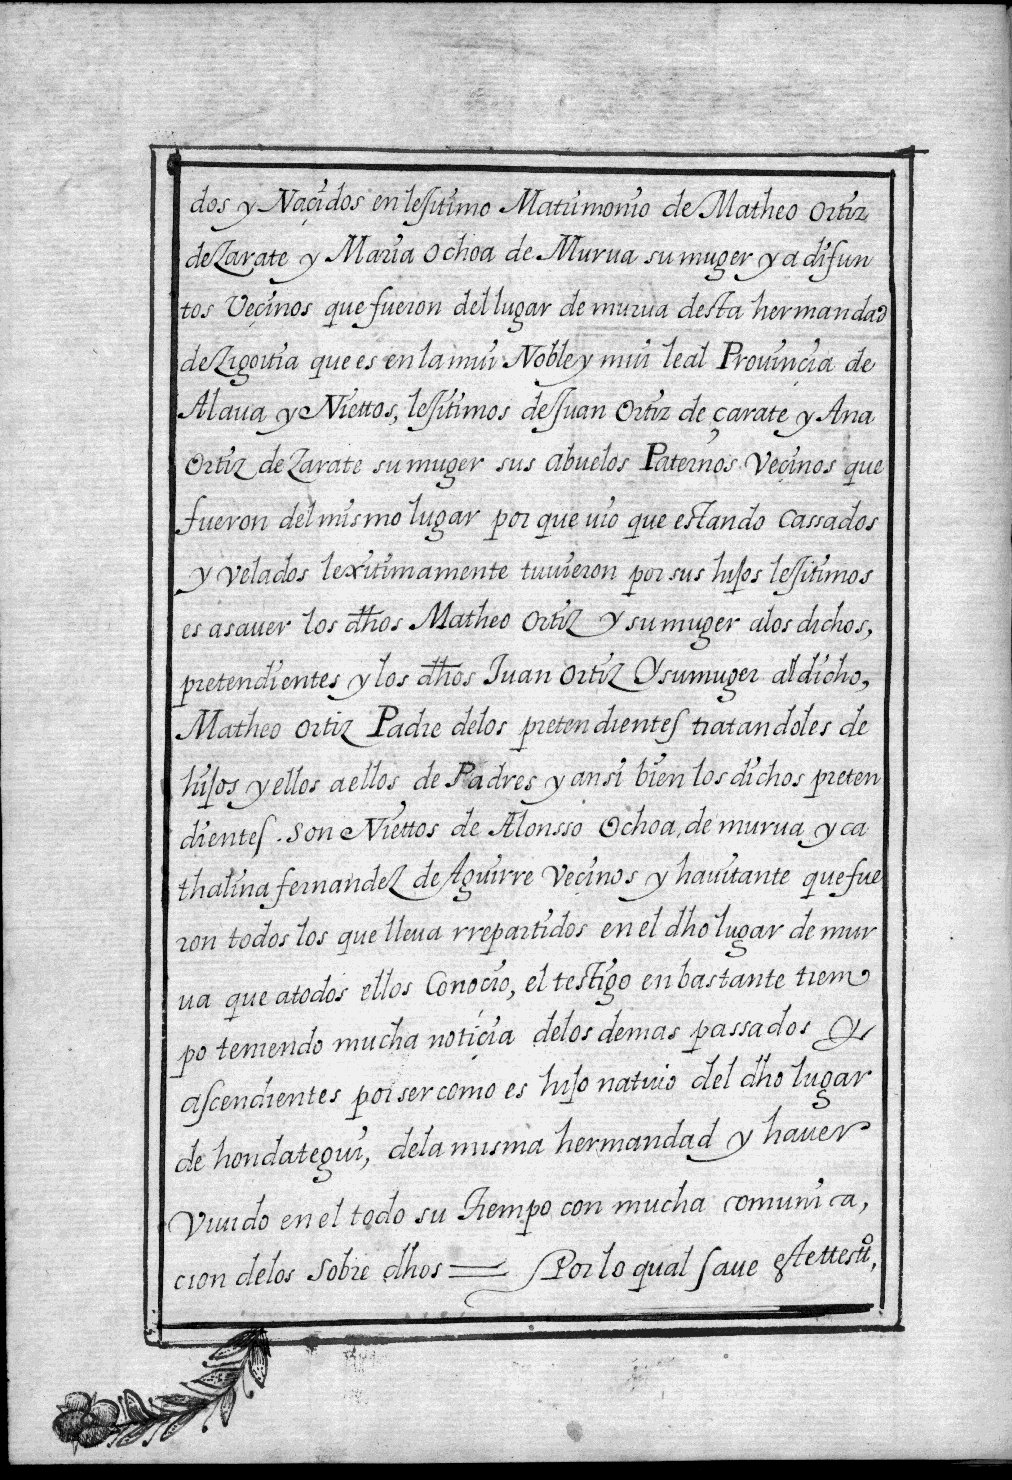 dos y Naçidos en lesitimo Matrimonio de Matheo ortiz
de Zarate y Maria ochoa de Murua su muger y a difun
tos Veçinos que fueron del lugar de murua desta hermandad
de Zigoitia que es en la mui Noble y mui leal Prouinçia de
Alaua y Niettos, lesitimos de Juan ortiz de çarate y Ana
ortiz de Zarate su muger sus abuelos Paternos Veçinos que
fueron del mismo lugar por que uio que estando cassados
y velados lexitimamente tuuieron por sus hijos lesitimos
es asauer los dhos Matheo ortiz y su muger alos dichos,
pretendientes y los dhos Juan ortiz Y su muger al dicho,
Matheo ortiz Padre delos pretendientes tratandoles de
hijos y ellos a ellos de Padres y ansi bien los dichos preten
dientes. son Niettos de Alonsso ochoa, de murua y ca
thalina fernandez de Aguirre Vecinos y hauitante que fue
ron todos los que lleua rrepartidos en el dho lugar de mur
ua que atodos ellos Conocio, el testigo en bastante tiem
po teniendo mucha notiçia delos demas passados Y
ascendientes por ser como es hijo natiuo del dho lugar
de hondategui, dela misma hermandad y hauer
Viuido en el todo su tiempo con mucha comunica,
cion delos sobre dhos = Por lo qual saue este ttestiº,